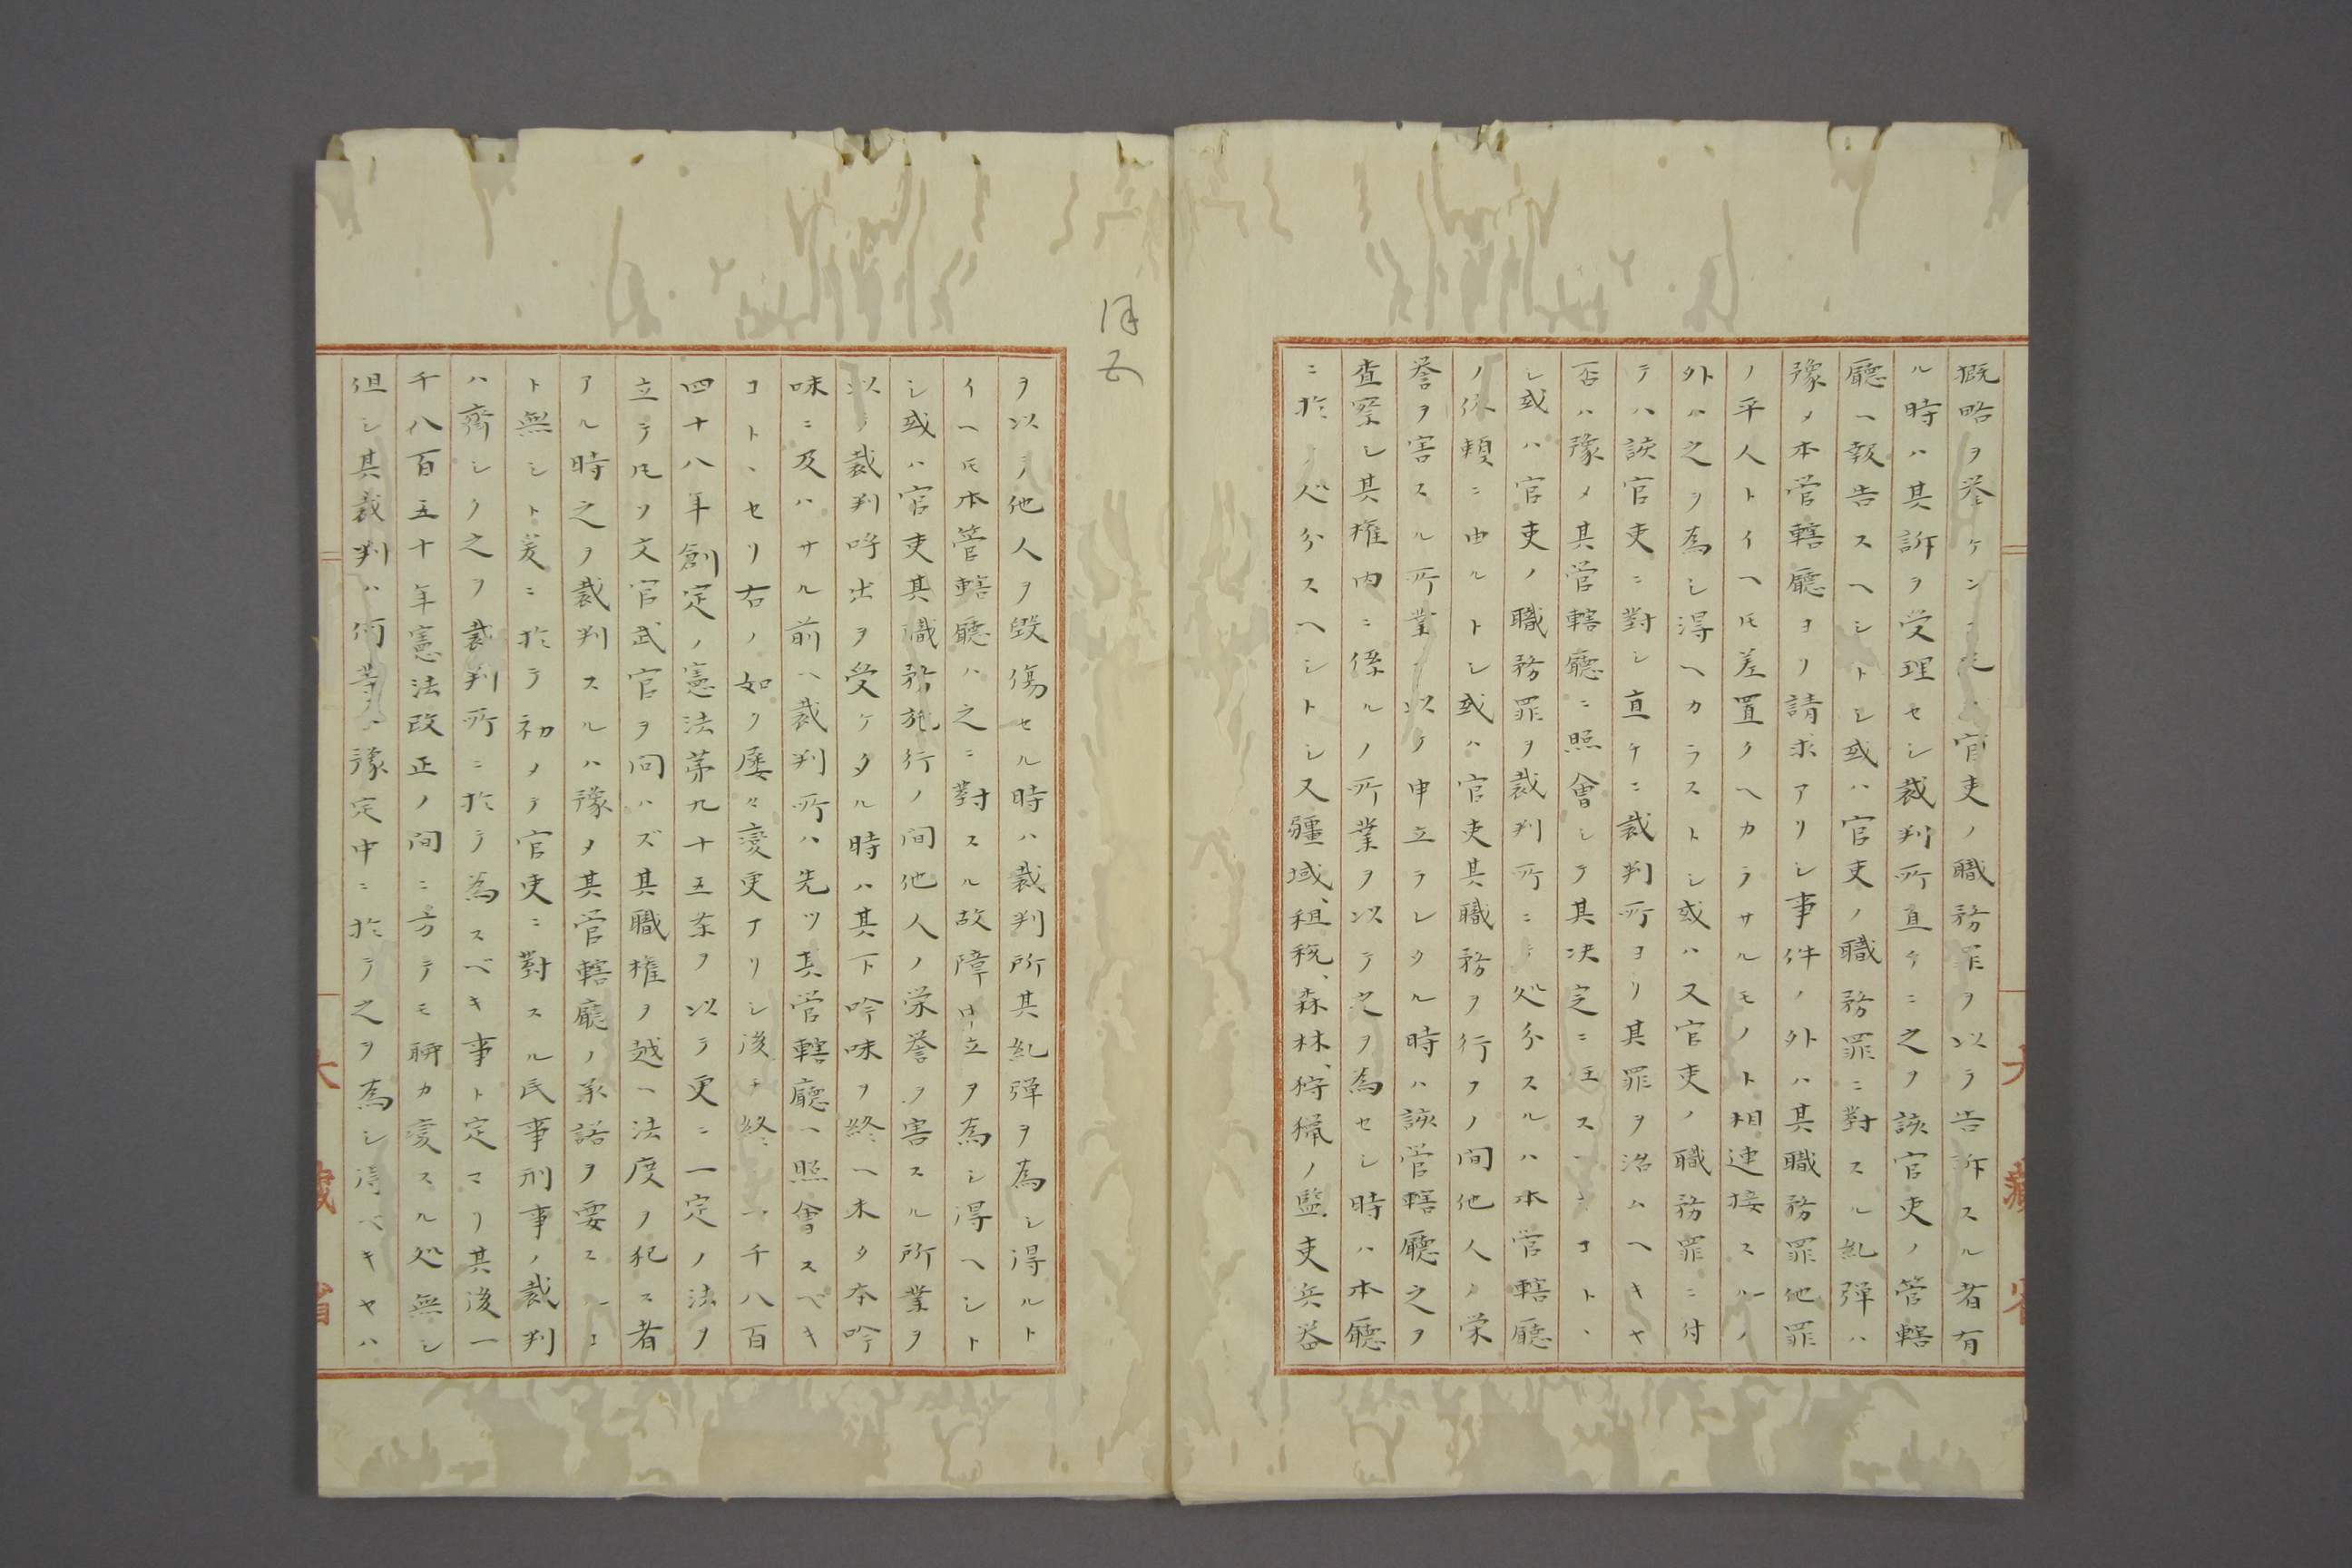 概略ヲ挙ケンニ官吏ノ職務罪ヲ以テ告訴スル者有
ル時ハ其訴ヲ受理セシ裁判所直ケニ之ヲ該官吏ノ管轄
廳ヘ報告スヘシトシ或ハ官吏ノ職務罪ニ對スル糺弾ハ
豫メ本管轄廳ヨリ請求アリシ事件ノ外ハ其職務罪他罪
ノ平人トイヘ𪜈差置クヘカラサルモノト相連接スルノ
外ハ之ヲ為シ得ヘカラストシ或ハ又官吏ノ職務罪ニ付
テハ該官吏ニ對シ直ケニ裁判所ヨリ其罪ヲ治ムヘキヤ
否ハ豫メ其管轄廳ニ照會シテ其决定ニ任スヘキコトヽ
シ或ハ官吏ノ職務罪ヲ裁判所ニテ処分スルハ本管轄廳
ノ依頼ニ由ルトシ或ハ官吏其職務ヲ行フノ間他人ノ栄
誉ヲ害スル所業ヲ以テ申立ラレタル時ハ該管轄廳之ヲ
査察シ其権内ニ係ルノ所業ヲ以テ之ヲ為セシ時ハ本廳
ニ於テ処分スヘシトシ又疆域、租税、森林、狩猟ノ監吏兵器
ヲ以テ他人ヲ毀傷セル時ハ裁判所其糺弾ヲ為シ得ルト
イヘ𪜈本管轄廳ハ之ニ對スル故障申立ヲ為シ得ヘシト
シ或ハ官吏其職務施行ノ間他人ノ栄誉ヲ害スル所業ヲ
以テ裁判呼出ヲ受ケタル時ハ其下吟味ヲ終ヘ未タ本吟
味ニ及ハサル前ヘ裁判所ハ先ツ其管轄廳ヘ照會スベキ
コトヽセリ右ノ如ク屡々変更アリシ後チ終ニ一千八百
四十八年創定ノ憲法第九十五条ヲ以テ更ニ一定ノ法ヲ
立テ凡ソ文官武官ヲ問ハズ其職権ヲ越ヘ法度ヲ犯ス者
アル時之ヲ裁判スルハ豫メ其管轄廳ノ承諾ヲ要スルコ
ト無シト爰ニ於テ初メテ官吏ニ對スル民事刑事ノ裁判
ハ齊シク之ヲ裁判所ニ於テ為スベキ事ト定マリ其後一
千八百五十年憲法改正ノ間ニ方テモ聊カ変スル処無シ
但シ其裁判ハ何等ノ豫定中ニ於テ之ヲ為シ得ベキヤハ
大藏省